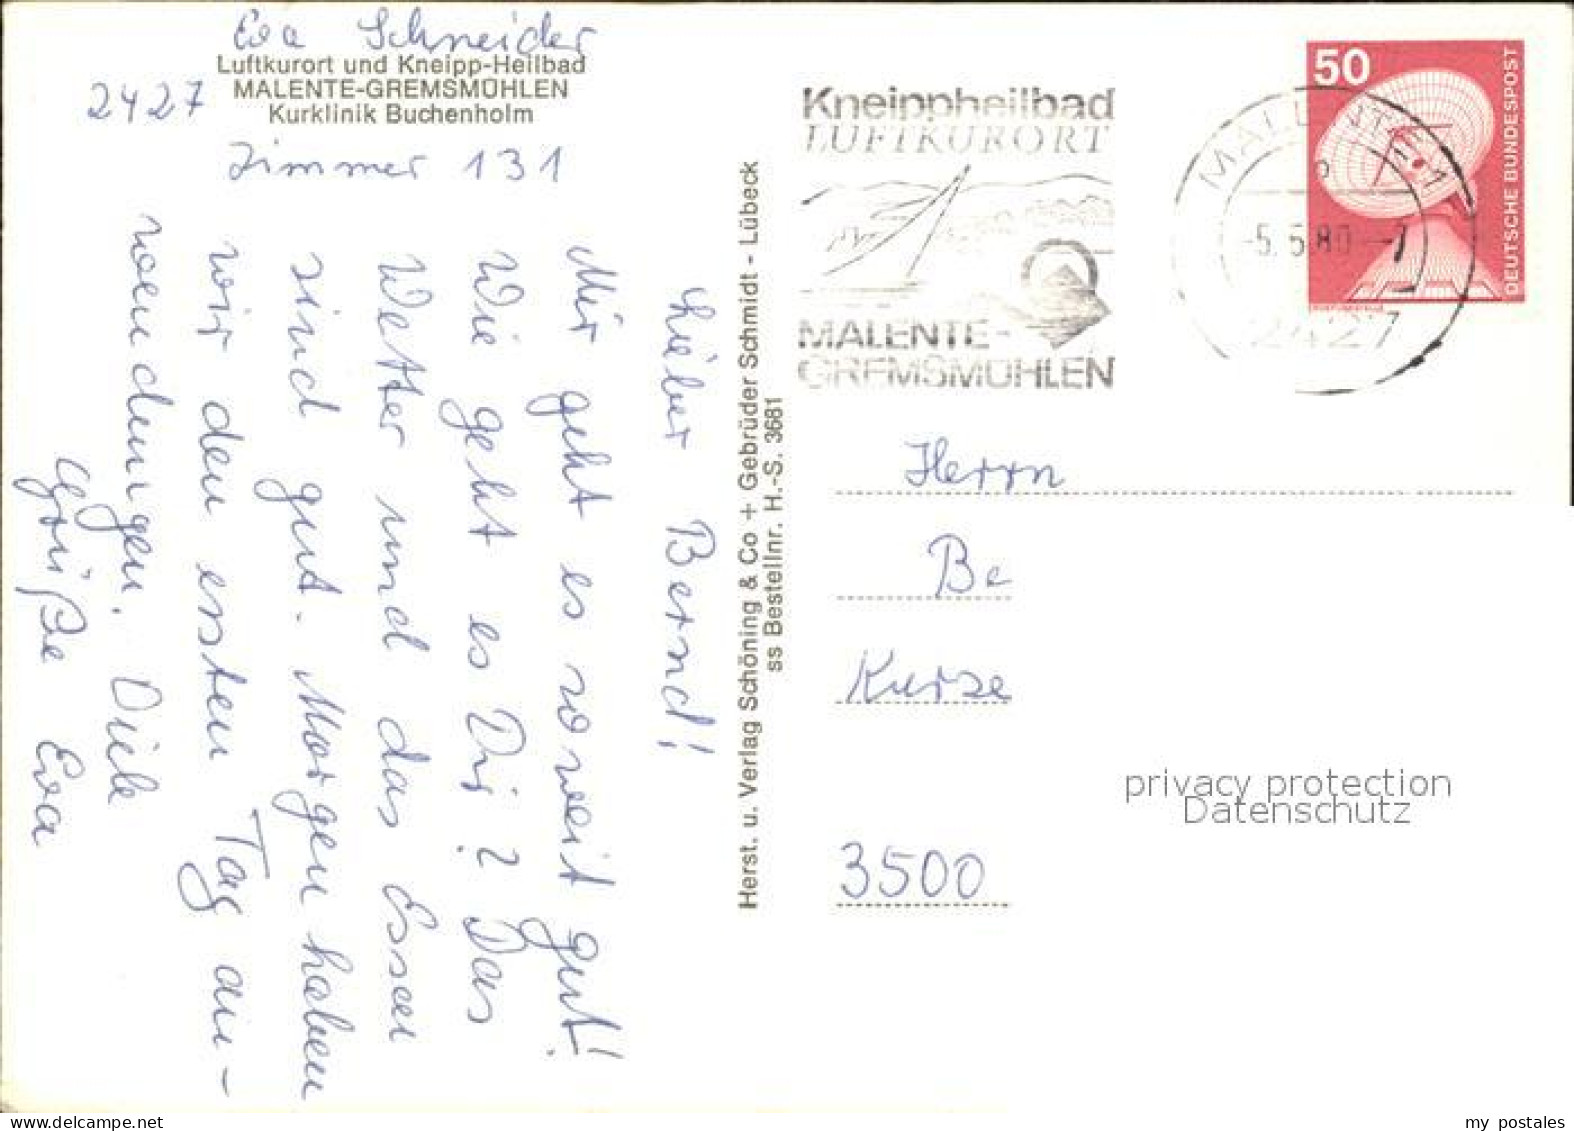 Eva Schneider
Luftkurort und Kneipp-Heilbad
2427 MALENTE-GREMSMÜHLEN
Kurklinik Buchenholm
Zimmer 131
Lieber Bernd!
Mir geht es soweit gut!
Wie geht es Dir? Das
Wetter und das Essen
sind gut. Morgen haben
wir den ersten Tag An-
wendungen. Viele
Grüße Eva
Herst. u. Verlag Schöning & Co + Gebrüder Schmidt - Lübeck
ss Bestellnr. H.-S. 3681
Kneippheilbad
LUFTKURORT
MALENTE-
GREMSMÜHLEN
MALENTE
-5.5.80-
2427
50
DEUTSCHE BUNDESPOST
Herrn
Be
Kurze
3500
privacy protection
Datenschutz
my postales